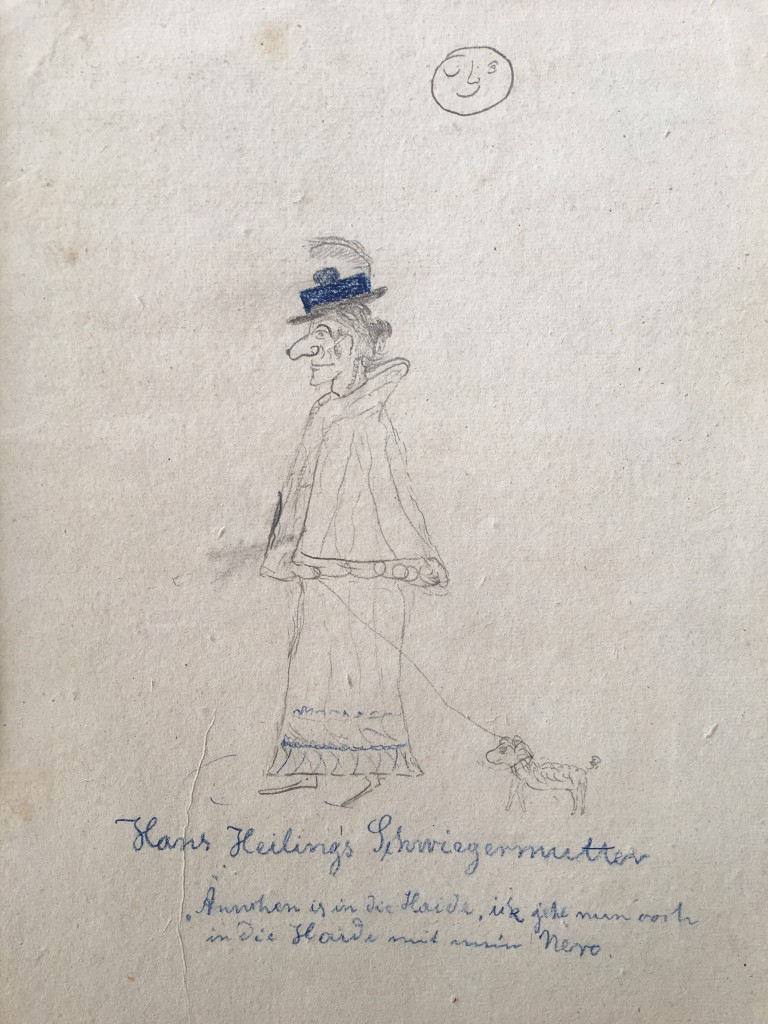 Hans Heiling's Schwiegermutter
„Ännchen is in die Haide, ick jehe nun ooch
in die Haide mit mein Nero.